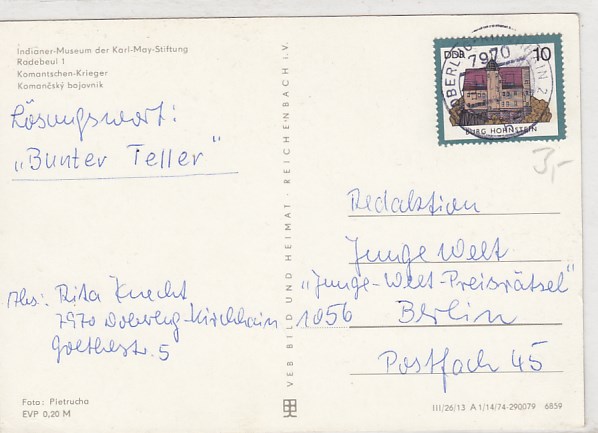 Indianer-Museum der Karl-May-Stiftung
Radebeul 1
Komantschen-Krieger
Komančský bojovník
Lösungswort:
„Bunter Teller"
Abs.: Rita Knecht
7970 Doberlug-Kirchhain
Goethestr. 5
Foto: Pietrucha
EVP 0,20 M
VEB BILD UND HEIMAT · REICHENBACH i.V.
DDR 10
BURG HOHNSTEIN
7970
3,-
Redaktion
Junge Welt
„Junge-Welt-Preisrätsel"
1056 Berlin
Postfach 45
III/26/13 A 1/14/74-290079 6859